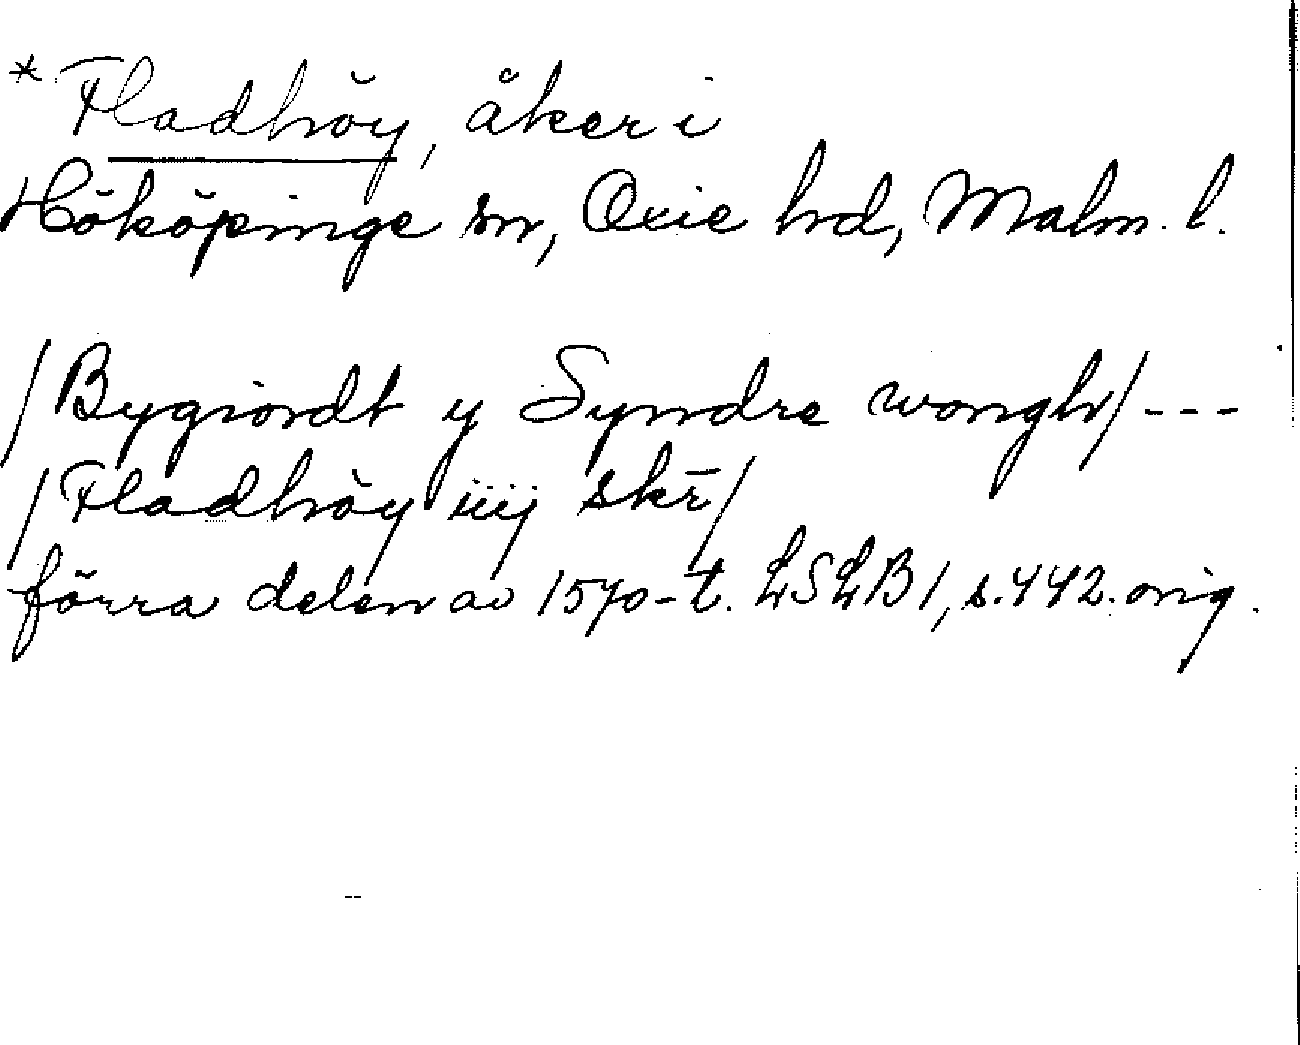 * Fladhöy, åker i
Hököpinge sn, Oxie hd, Malm. l.
/Bygiordt y Syndre wongh/---
/Fladhöy iiij skr̄/
förra delen av 1570-t. LSLB1, s.442. orig.